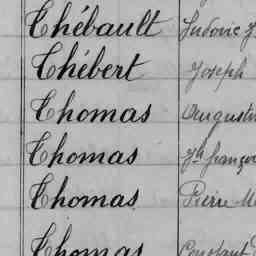 Thébault Ludovic
Thébert Joseph
Thomas Augustin
Thomas Jh
Thomas Pierre
Thomas Constant